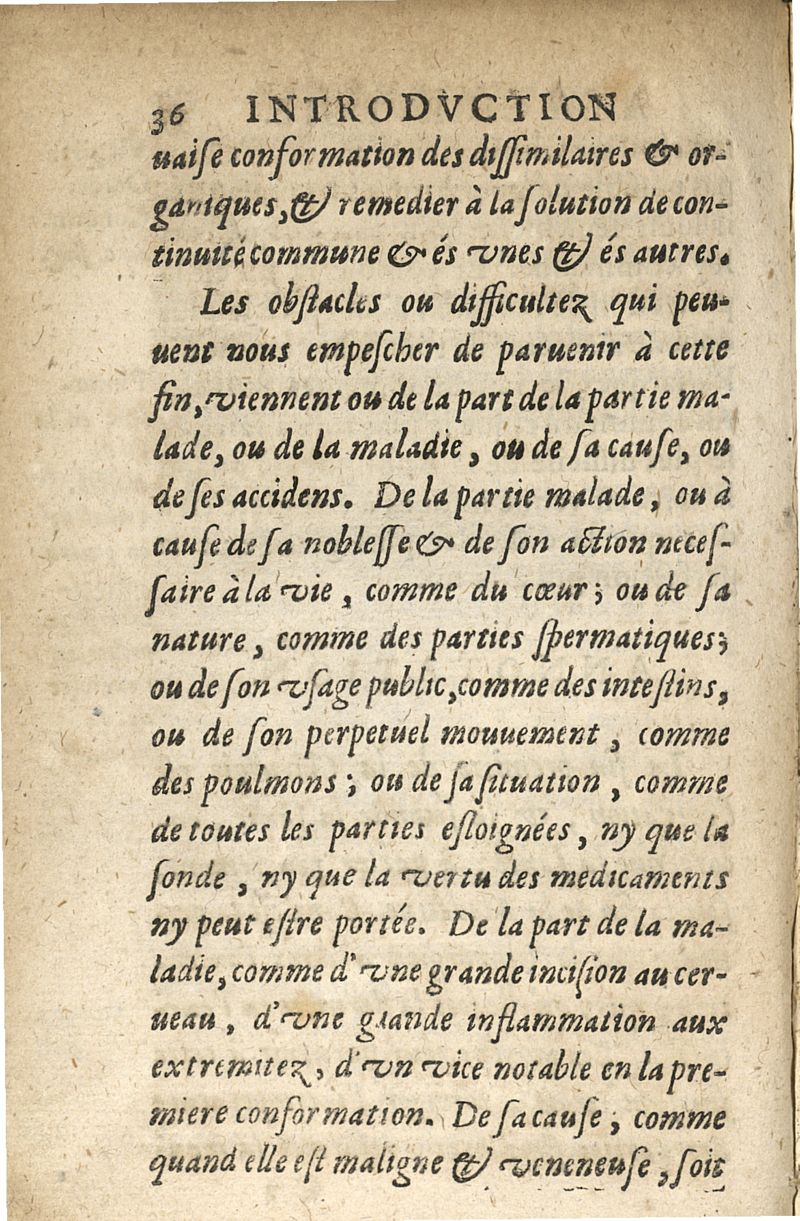 36 INTRODVCTION
uaiſe conformation des diſſimilaires & or-
ganiques, & remedier à la ſolution de con-
tinuité commune & és vnes & és autres.
Les obſtacles ou difficultez qui peu-
uent nous empeſcher de paruenir à cette
fin, viennent ou de la part de la partie ma-
lade, ou de la maladie, ou de ſa cauſe, ou
de ſes accidens. De la partie malade, ou à
cauſe de ſa nobleſſe & de ſon action neceſ-
ſaire à la vie, comme du cœur; ou de ſa
nature, comme des parties ſpermatiques;
ou de ſon vſage public, comme des inteſtins,
ou de ſon perpetuel mouuement, comme
des poulmons; ou de ſa ſituation, comme
de toutes les parties eſloignées, ny que la
ſonde, ny que la vertu des medicaments
ny peut eſtre portée. De la part de la ma-
ladie, comme d'vne grande inciſion au cer-
ueau, d'vne grande inflammation aux
extremitez, d'vn vice notable en la pre-
miere conformation. De ſa cauſe, comme
quand elle eſt maligne & veneneuſe, ſoit